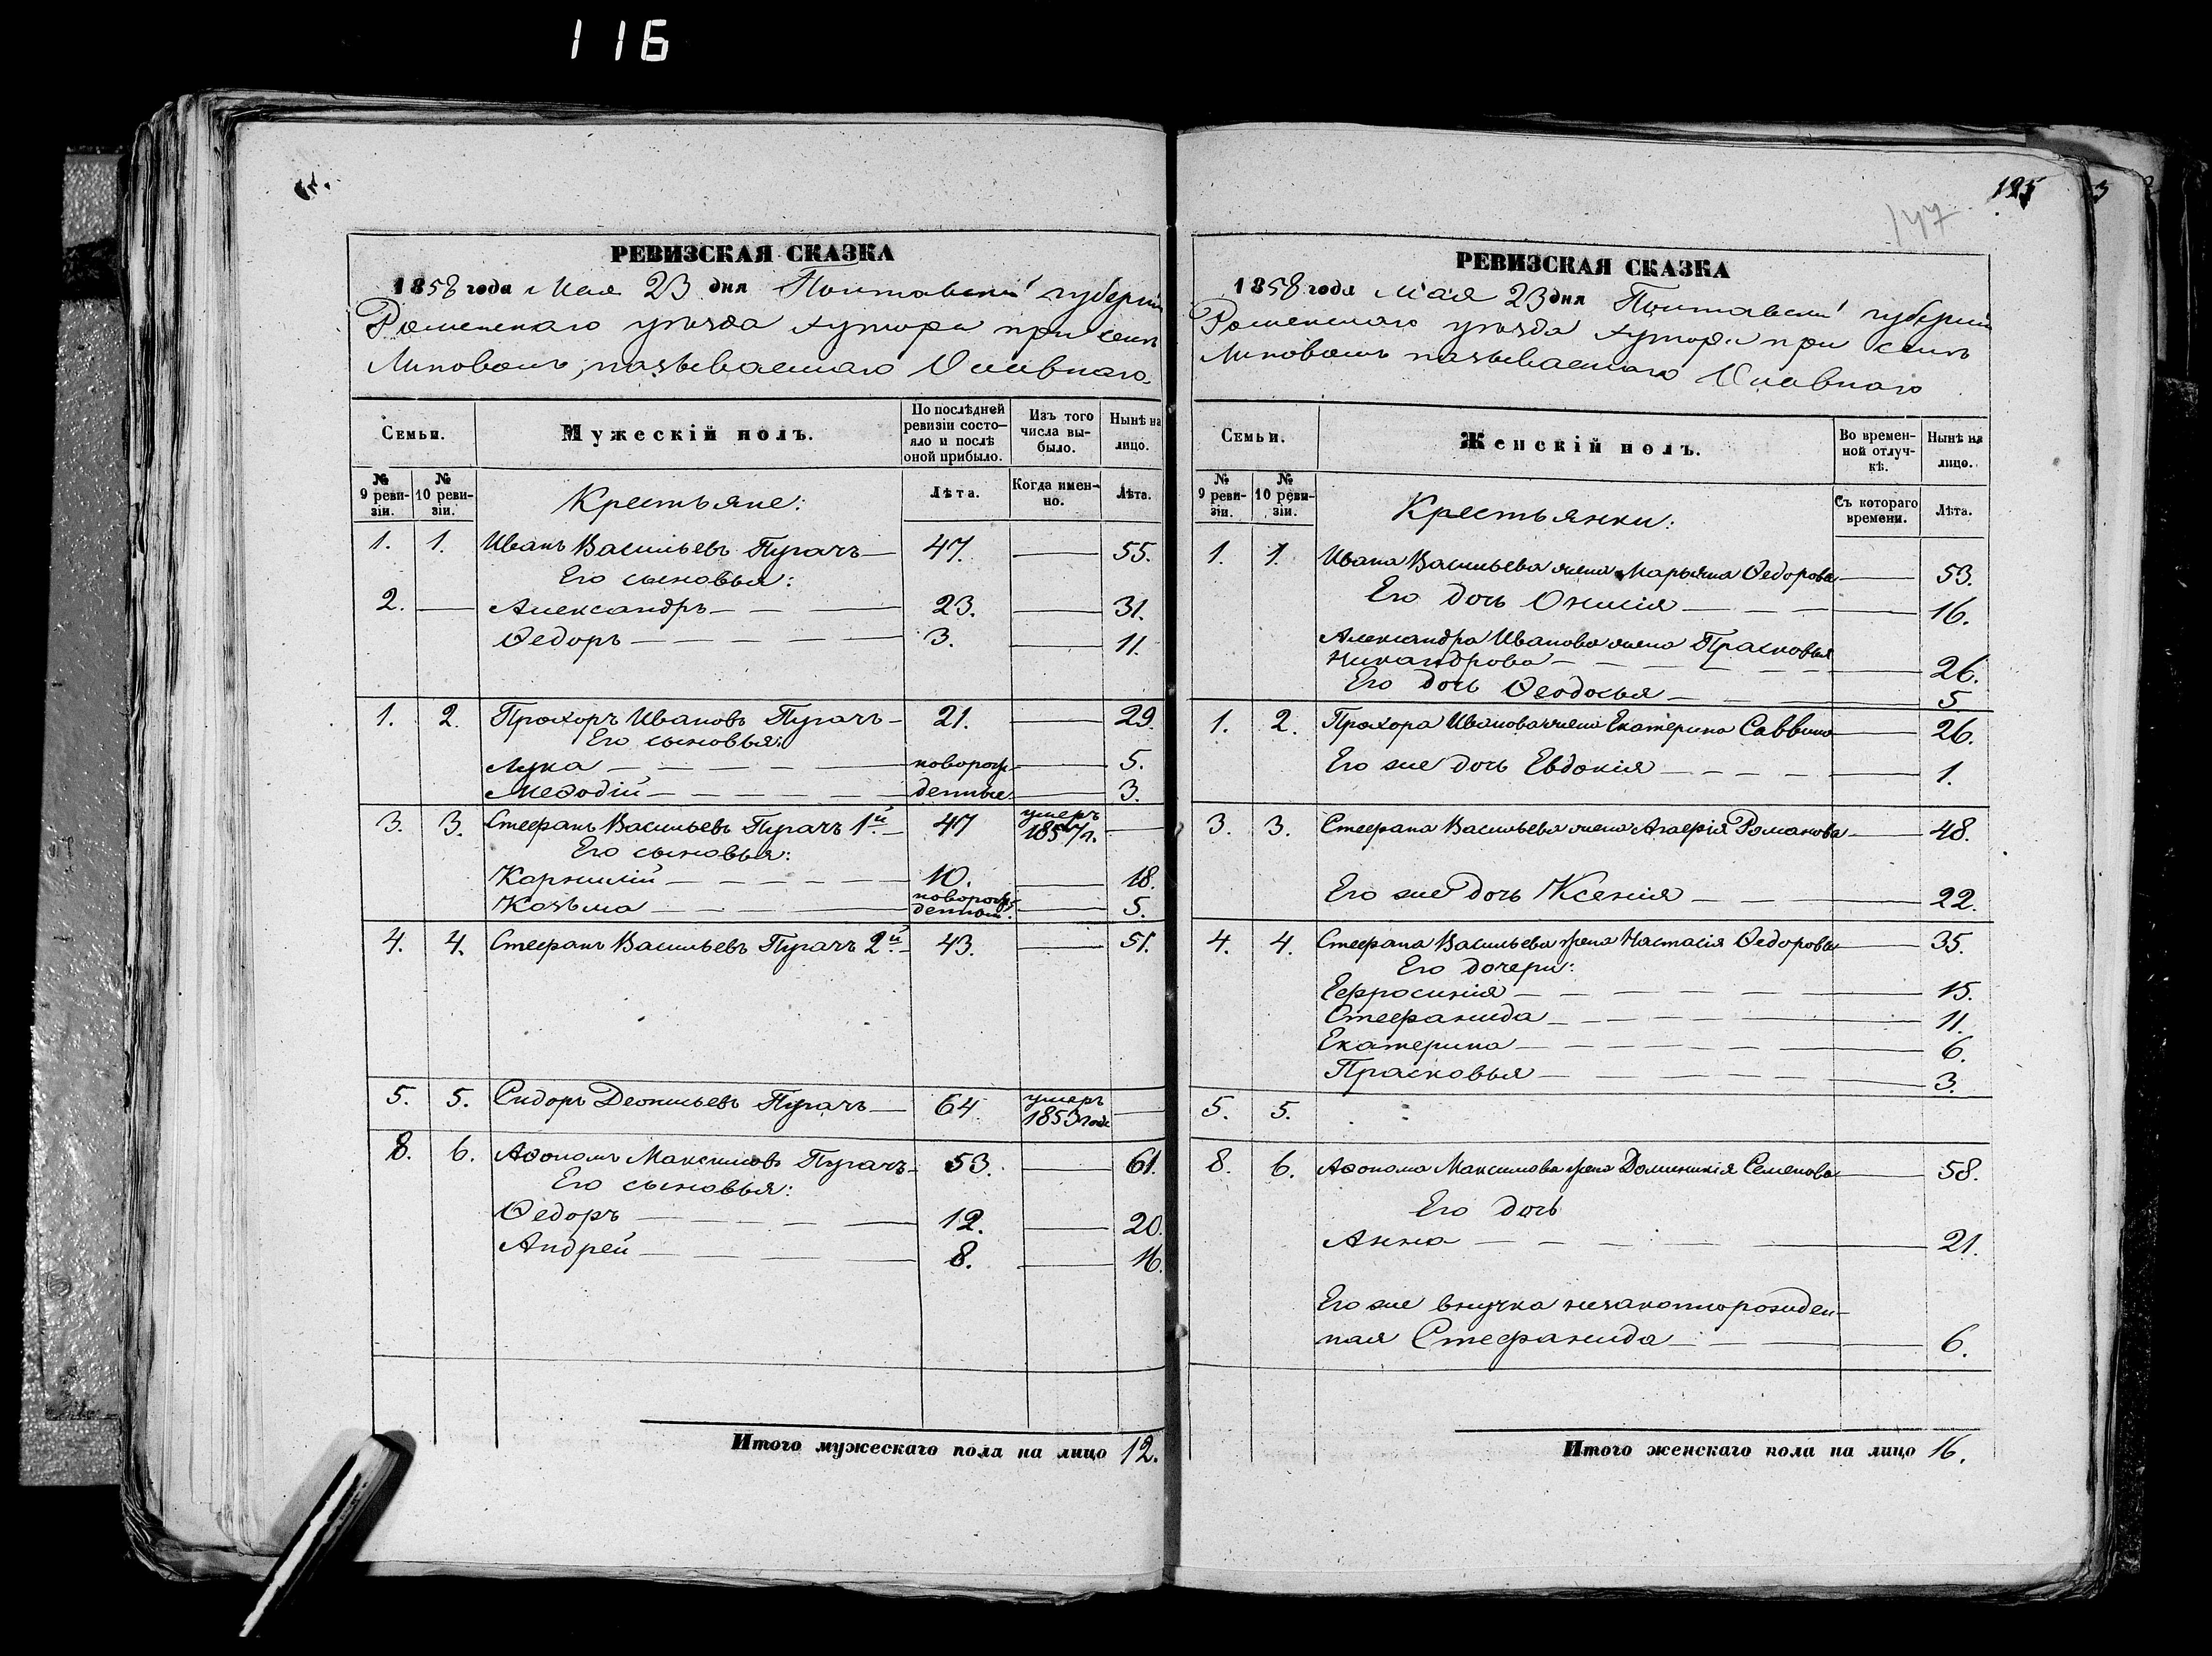 116
РЕВИЗСКАЯ СКАЗКА
1858 года Мая 23 дня Полтавской губерніи
Роменскаго уѣзда хутора при селѣ
Липовомъ, называемаго
Семьи.
Мужескій полъ.
По послѣдней ревизіи состо-
яло и послѣ
оной прибыло.
Изъ того
числа вы-
было.
Нынѣ на
лицо.
№
9 реви-
зіи.
№
10 реви-
зіи.
Крестьяне:
Лѣта.
Когда имен-
но.
Лѣта.
1. 1. Иванъ Васильевъ Пугачъ— 47. — 55.
Его сыновья:
2. — Александръ — 23. — 31.
Ѳедоръ — 3. — 11.
1. 2. Прохоръ Ивановъ Пугачъ— 21. — 29.
Его сыновья:
Лука — новорож- — 5.
Меѳодій — денные. — 3.
3. 3. Стефанъ Васильевъ Пугачъ 1й — 47 умеръ 1857 г. —
Его сыновья:
Карнилій — 10. — 18.
Козьма — новорож-денной. — 5.
4. 4. Стефанъ Васильевъ Пугачъ 2й — 43. — 51.
5. 5. Сидоръ Леонтьевъ Пугачъ— 64. умеръ 1853 года —
8. 6. Аѳономъ Максимовъ Пугачъ— 53. — 61.
Его сыновья:
Ѳедоръ — 12. — 20.
Андрей — 8. — 16.
Итого мужескаго пола на лицо 12.
125
147
РЕВИЗСКАЯ СКАЗКА
1858 года Мая 23 дня Полтавской губерніи
Роменскаго уѣзда хутора при селѣ
Липовомъ называемаго
Семьи.
Женскій полъ.
Во времен-
ной отлуч-
кѣ.
Нынѣ на
лицо.
№
9 реви-
зіи.
№
10 реви-
зіи.
Крестьянки:
Съ котораго
времени.
Лѣта.
1. 1. Ивана Васильева жена Марьяна Ѳедорова — 53.
Его дочь Онисія — 16.
Александра Иванова жена Прасковья
Никандрова — 26.
Его дочь Ѳеодосья — 5.
1. 2. Прохора Иванова жена Екатерина Саввина — 26.
Его же дочь Евдокія — 1.
3. 3. Стефана Васильева жена Агафія Романова — 48.
Его же дочь Ксенія — 22.
4. 4. Стефана Васильева жена Настасія Ѳедорова — 35.
Его дочери:
Ефросинія — 15.
Стефанида — 11.
Екатерина — 6.
Прасковья — 3.
5. 5.
8. 6. Аѳонома Максимова жена Доминикія Семенова — 58.
Его дочь
Анна — 21.
Его же внучка незаконнорожден-
ная Стефанида — 6.
Итого женскаго пола на лицо 16.